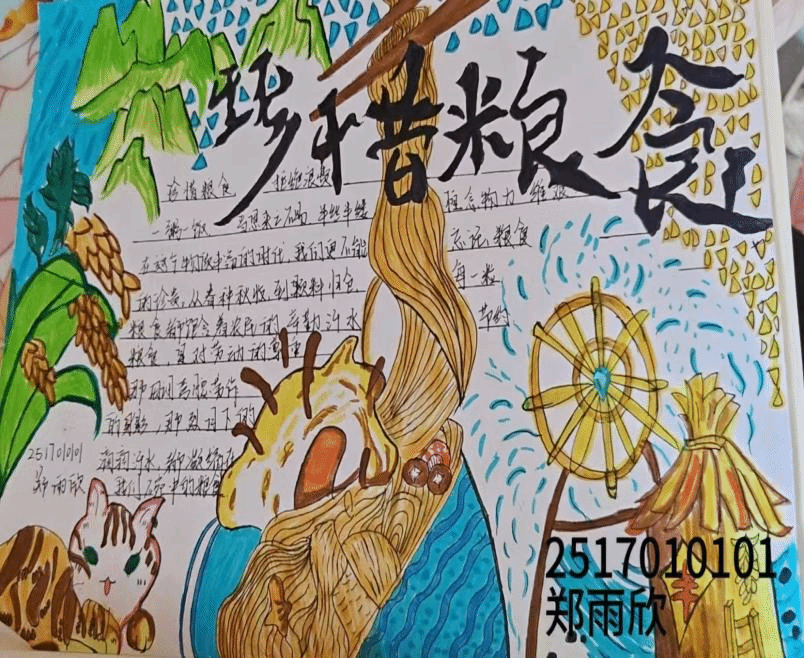 珍惜粮食
珍惜粮食 拒绝浪费
粥一饭 当思来之不易 半丝半缕 恒念物力维艰
在这个物质丰富的时代,我们更不能忘记粮食
的珍贵,从春种秋收,到颗粒归仓 每一粒
粮食都饱含着农民的辛勤汗水 节约
粮食 是对劳动的尊重
那田间
的身影,那烈日下的
汗水
我们 中的粮食
25170101
郑雨欣
2517010101
郑雨欣